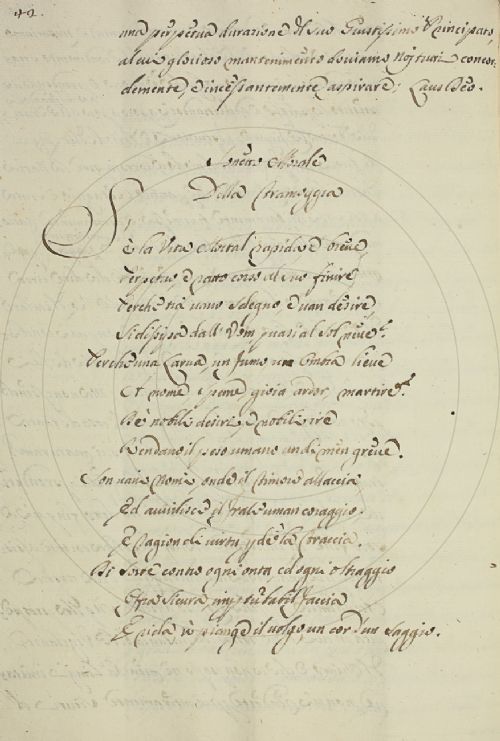 42.
una perpetua durazione del suo Giustissimo Principato,
al cui glorioso mantenimento doviamo noj tutti concor
demente, e incessantemente aspirare; Laus Deo.
Sonetto Morale
Della
Sì, è la Vita Mortal rapida e breve,
Perpetuo e ratto corso al suo finire
Perche tra vano sdegno, e van desire
Si dissipa dall' Uom quasi al Sol neve.
Perche una Larva, un fumo una Ombra lieve
nome pene gioia ardor, martire
nobili desiri, e nobil ire
Rendano il peso umano un dì men greve.
Son vani nomi onde il timore allaccia
Ed avvilisce il frale uman coraggio.
E cagion di virtù, la braccia
Di forte contro ogni onta, ed ogni oltraggio
sicura, imperturbabil faccia
E rida, o pianga il volgo, un cor d'un saggio.